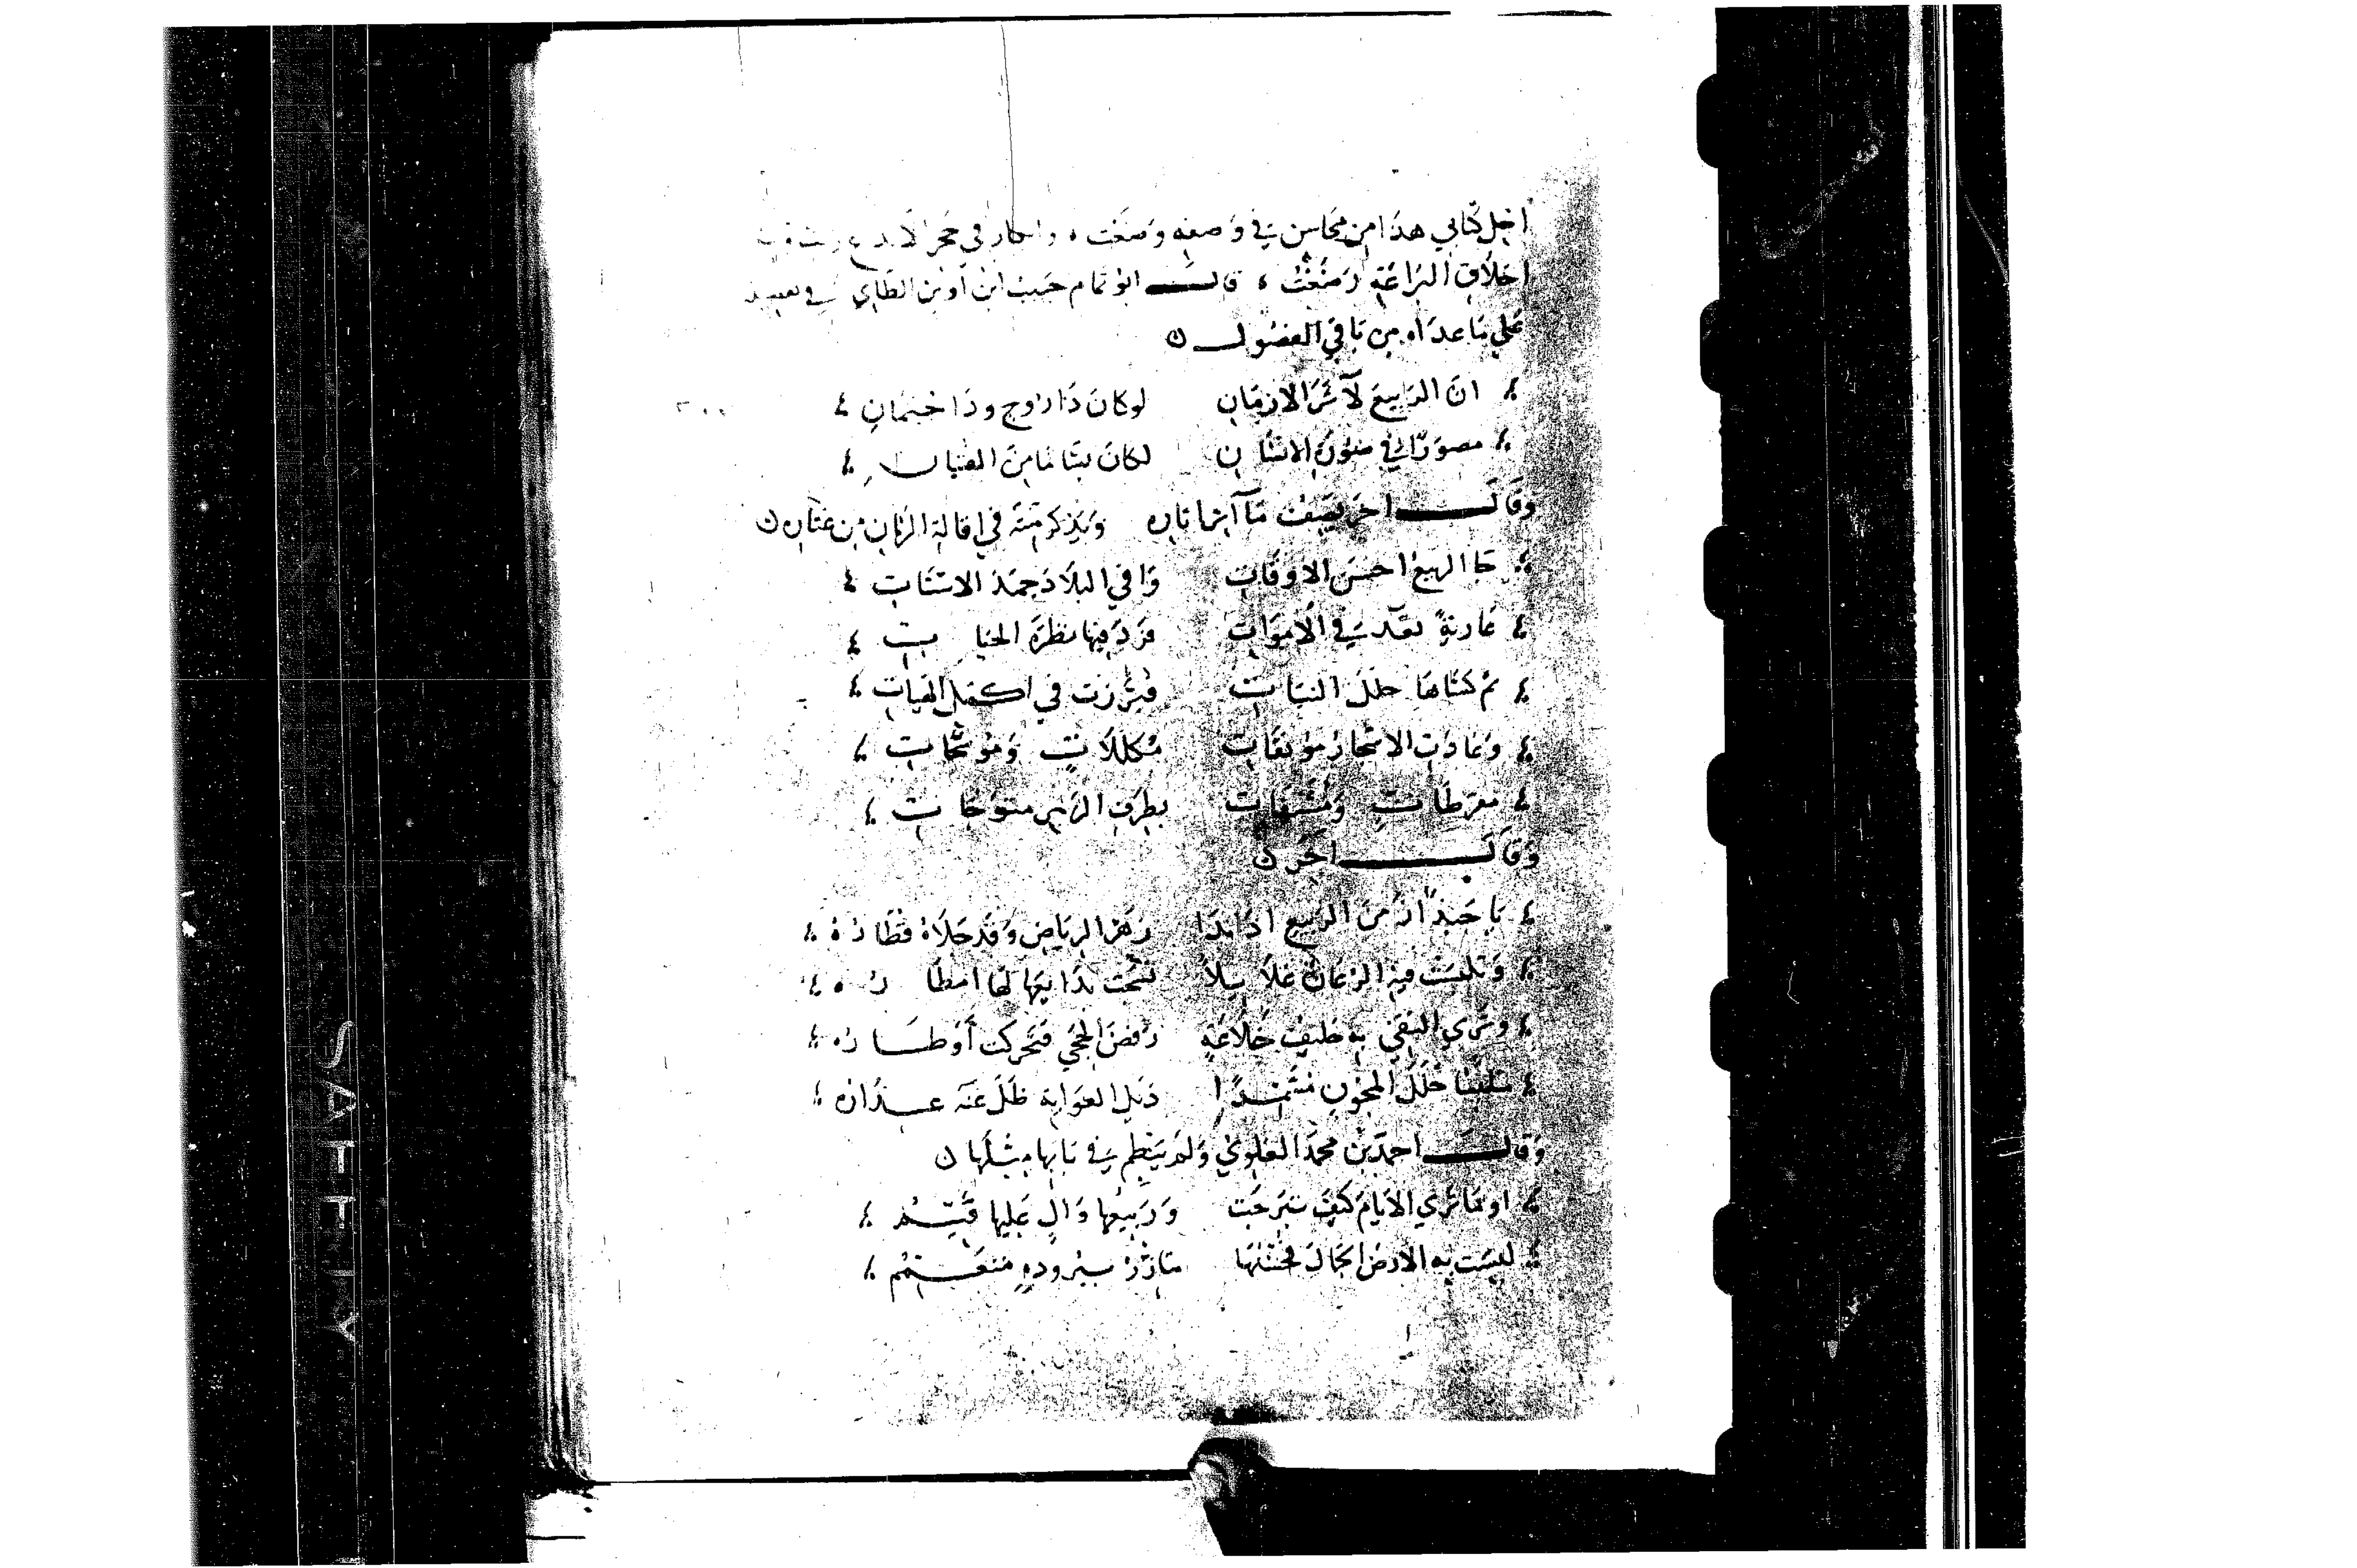 اخل كتابي هذا من محاسن في وصفه وصنعت، في حجر
اخلاق البراعة رضعت، قال ابو تمام حبيب ابن أوس الطاي في
علي ما عداه من باقي الفصول
ان الربيع لآثر الازمان لو كان ذا روح وذا جثمان
مصورا في صورة الانسان لكان بساما من الفتيان
وقال اخر يصف ويذكر منته في اقالة الزمان من
جا الربيع احسن الاوقات وافي البلاد جمة
في الأموات فرد فيها نظرة الحيا ت
ثم كساها حلل النبات فبرزت في اكمل الهيات
وعادت الاشجار مونقات مكللات وموشحات
مقرطات ومشنفات بطرف الزهر متوجات
وقال اخر
يا حبذا زمن الربيع اذا بدا زهر الرياض وقد حلاه قطاره
وتلبست فيه الرعان غلايلا نسجت بدايعها لها امطا ره
وتري التقي به حليف خلاعة رفض الحجي فتحركت أوطاره
متلبسا حلل المجون مشمرا ذيل الغواية ظل عنه عذاره
وقال احمد بن محمد العلوي ولم ينظم في بابها مثلها
او ما تري الايام كيف تبرجت وربيعها وال عليها قيم
لبست به الارض الجمال فحسنها متازر ببروده متعمم
SAFETY